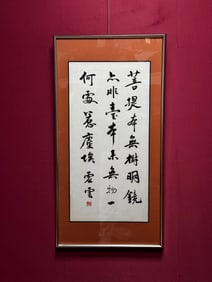 菩提本無樹明鏡
亦非臺本來無物一
何處惹塵埃 虛雲